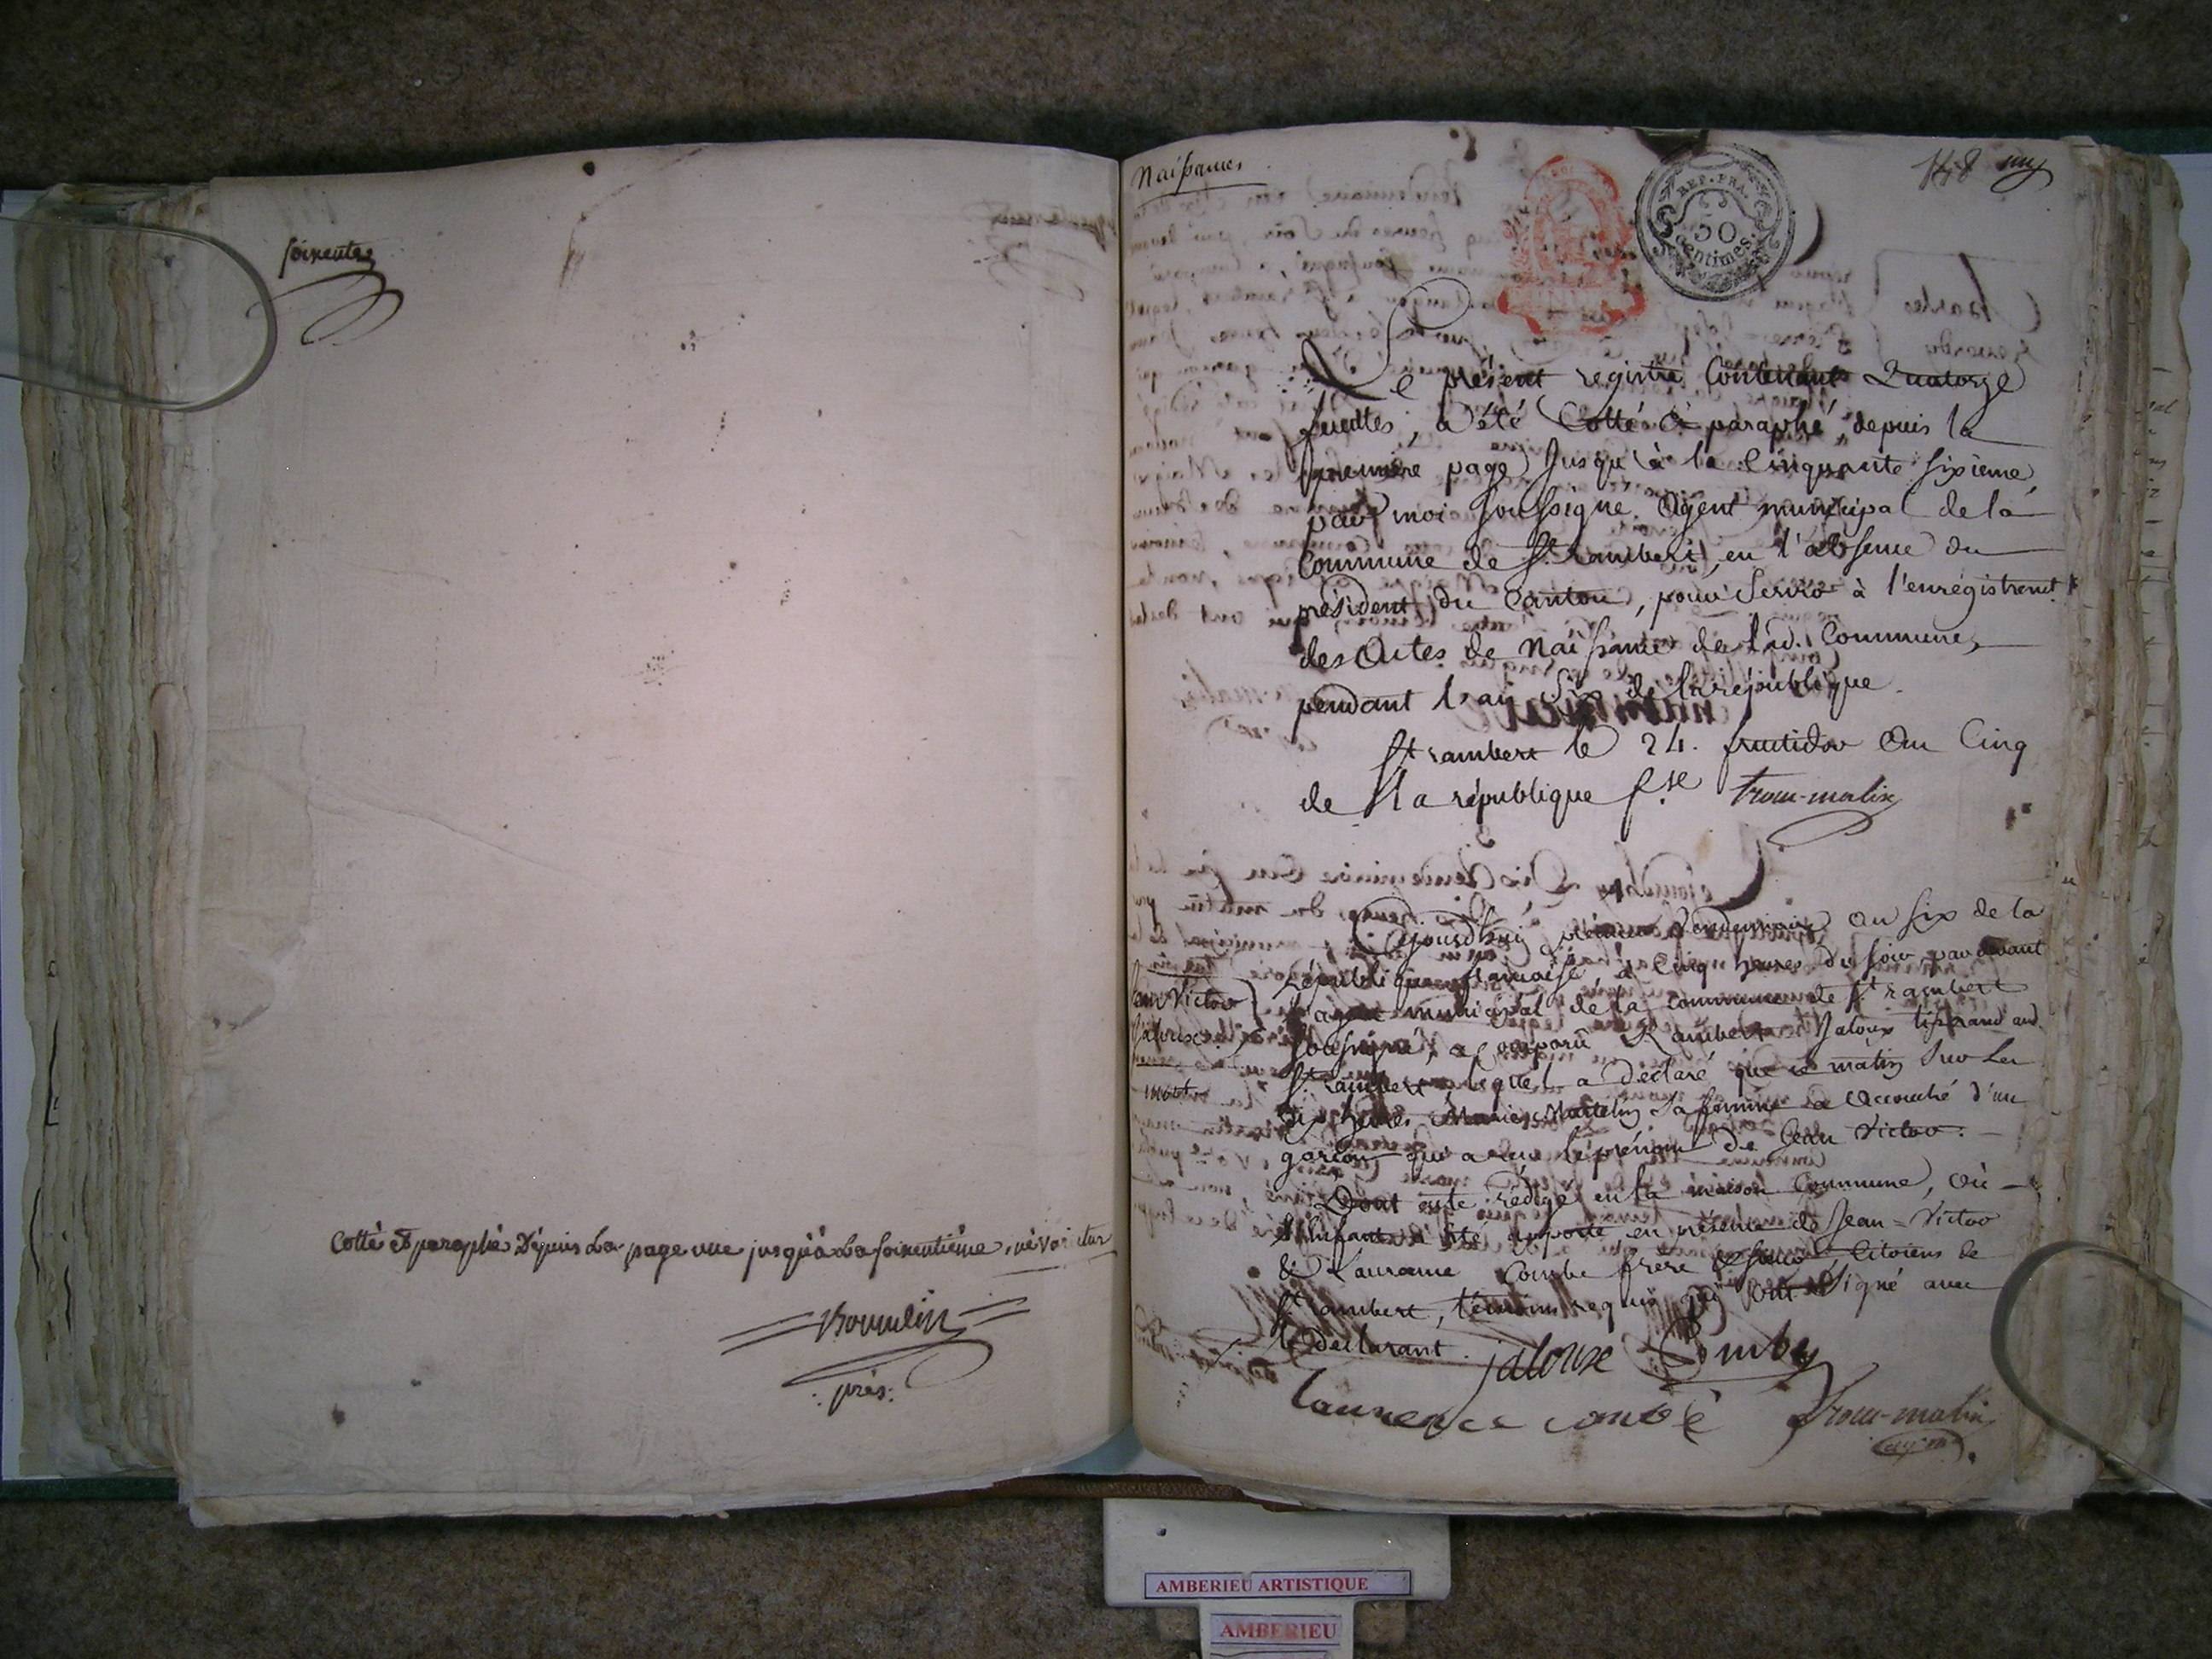 soixante
Cotté et paraphé Depuis La page une jusqu'à La soixentième, ne varietur
près:
Naissances
148
REP. FRA.
50
Centimes.
Le présent registre Contenant Quatorze
feuilles, a été Cotté et paraphé, depuis la
premiere page Jusqu'à la Cinquante sixieme,
par moi soussigné Agent municipal de la
Commune de St. rambert, en l'absence du
président du Canton, pour Servir à l'enrégistremt.
des Actes de Naissance de lad. Commune,
pendant l'an Six de la république.
St rambert le 24. fructidor An Cinq
de la république fse trocu-matin
Cejourd'hui premier Vendemiaire an six de la
république française, à Cinq heures du soir, par devant
l'agent municipal de la Commune de St rambert
soussigné, a comparû Rambert Jaloux tisserand aud.
St rambert, lequel a déclaré que ce matin sur les
dix heures Marie Martelin sa femme a accouché d'un
garçon qui a reçu le prénom de Jean Victor.
Jean Victor
Jaloux.
mort
Dont acte rédigé en la maison Commune, où
l'enfant a été apporté, en présence de Jean-Victor
& Laurence Combe frere & soeur Citoiens de
St rambert, témoins requis qui ont signé avec
le déclarant. jaloux Combe
laurence combe trocu-matin
agent
AMBERIEU ARTISTIQUE
AMBERIEU